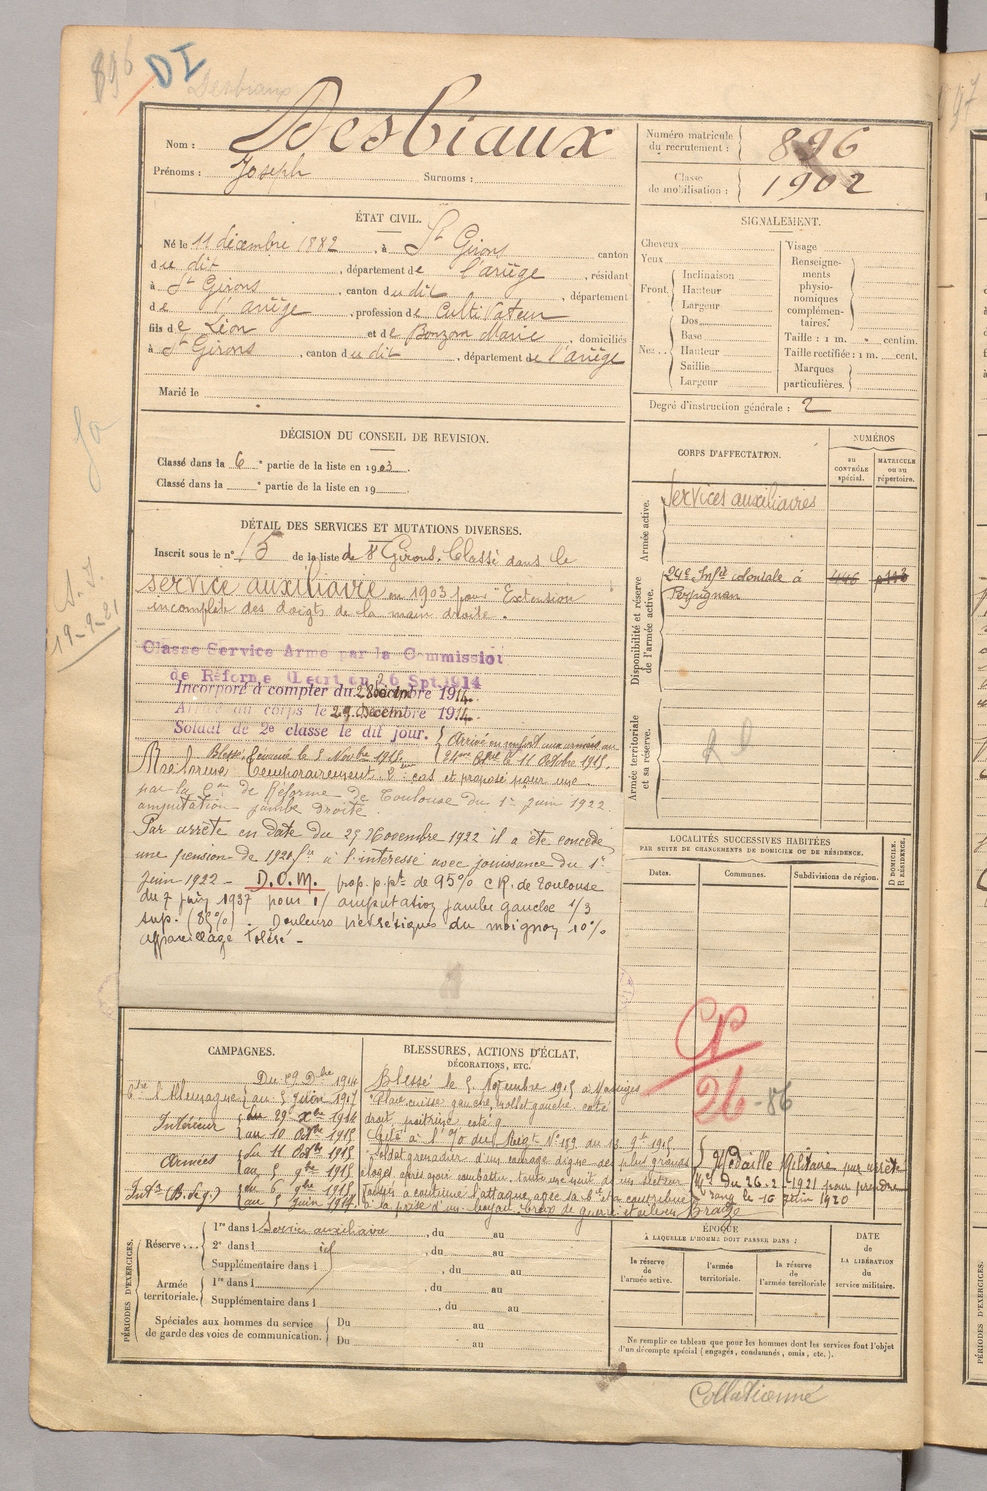 896
DI
Desbiaux
Nom : Desbiaux
Prénoms : Joseph Surnoms :
Numéro matricule du recrutement : 896
Classe de mobilisation : 1902
ÉTAT CIVIL.
Né le 11 décembre 1882, à St Girons canton
du dit, département de l'ariège, résidant
à St Girons, canton du dit, département
de l'ariège, profession de Cultivateur
fils de Léon et de Bonzom Marie, domiciliés
à St Girons, canton du dit, département de l'ariège
Marié le
SIGNALEMENT.
Cheveux
Yeux
Front. Inclinaison
Hauteur
Largeur
Nez.. Dos
Base
Hauteur
Saillie
Largeur
Visage
Renseignements physionomiques complémentaires:
Taille : 1 m. centim.
Taille rectifiée : 1 m. cent.
Marques particulières.
Degré d'instruction générale : 2
DÉCISION DU CONSEIL DE REVISION.
Classé dans la 6e partie de la liste en 1903.
Classé dans la e partie de la liste en 19
CORPS D'AFFECTATION.
NUMÉROS
au CONTRÔLE spécial.
MATRICULE ou au répertoire.
Armée active.
Services auxiliaires
Disponibilité et réserve de l'armée active.
24e Infie coloniale à
Perpignan
446
Armée territoriale et sa réserve.
DÉTAIL DES SERVICES ET MUTATIONS DIVERSES.
Inscrit sous le n° 15 de la liste de St Girons. Classé dans le
service auxiliaire en 1903 pour "Extension
incomplète des doigts de la main droite.
A. J.
19-9-21
Classe Service Armé par la Commission
de Réforme (Décret du 26 Spt. 1914
Incorporé à compter du 28 décembre 1914.
Arrivé au corps le 29 Décembre 1914.
Soldat de 2e classe le dit jour.
Arrivé en renfort aux armées au
24me le 11 Octobre 1915.
Blessé, Évacué le 5 Novbre 1915.
Réformé temporairement 2me cas et proposé pour une
par la Con de Réforme de Toulouse du 1er juin 1922
amputation jambe droite
Par arrêté en date du 29 Novembre 1922 il a été concédé
une pension de 1920 frs à l'intéressé avec jouissance du 1er
juin 1922 - D.O.M. prop. p.pte de 95% CR. de Toulouse
du 7 juin 1937 pour 1/ amputation jambe gauche 1/3
sup. (85%) - Douleurs névretiques du moignon 10%
appareillage toléré -
LOCALITÉS SUCCESSIVES HABITÉES
PAR SUITE DE CHANGEMENTS DE DOMICILE OU DE RÉSIDENCE.
Dates. Communes. Subdivisions de région.
D DOMICILE.
R RÉSIDENCE.
26-86
CAMPAGNES.
Ctre l'Allemagne du 29 Dbre 1914
au 5 Juin 1917
Intérieur du 29 Xbre 1914
au 10 Octbre 1915
Armées du 11 Octbre 1915
au 5 9bre 1915
Intr (B. de g.) du 6 9bre 1915
au 5 juin 1917
BLESSURES, ACTIONS D'ÉCLAT,
DÉCORATIONS, ETC.
Blessé le 5 Novembre 1915 à Massiges
Plaie cuisse gauche, mollet gauche, coté
droit, poitrine coté g.
Cité à l'O du Régt N° 189 du 13 9bre 1915
Soldat grenadier d'un courage digne des plus grands
éloges après avoir combattu toute une nuit
a continué l'attaque avec sa et a contribué
à la prise d'un boyau. Croix de guerre étoile en Bronze
Médaille Militaire par arrêté
Mel du 26-2-1921 pour prendre
rang le 16 juin 1920
PÉRIODES D'EXERCICES.
Réserve... 1re dans l Service auxiliaire, du au
2e dans l id, du au
Supplémentaire dans l, du au
Armée territoriale. 1re dans l, du au
Supplémentaire dans l, du au
Spéciales aux hommes du service de garde des voies de communication. Du au
Du au
ÉPOQUE
À LAQUELLE L'HOMME DOIT PASSER DANS :
la réserve de l'armée active.
l'armée territoriale.
la réserve de l'armée territoriale
DATE de LA LIBÉRATION du service militaire.
Ne remplir ce tableau que pour les hommes dont les services font l'objet
d'un décompte spécial (engagés, condamnés, omis, etc.).
Collationné
97
PÉRIODES D'EXERCICES.